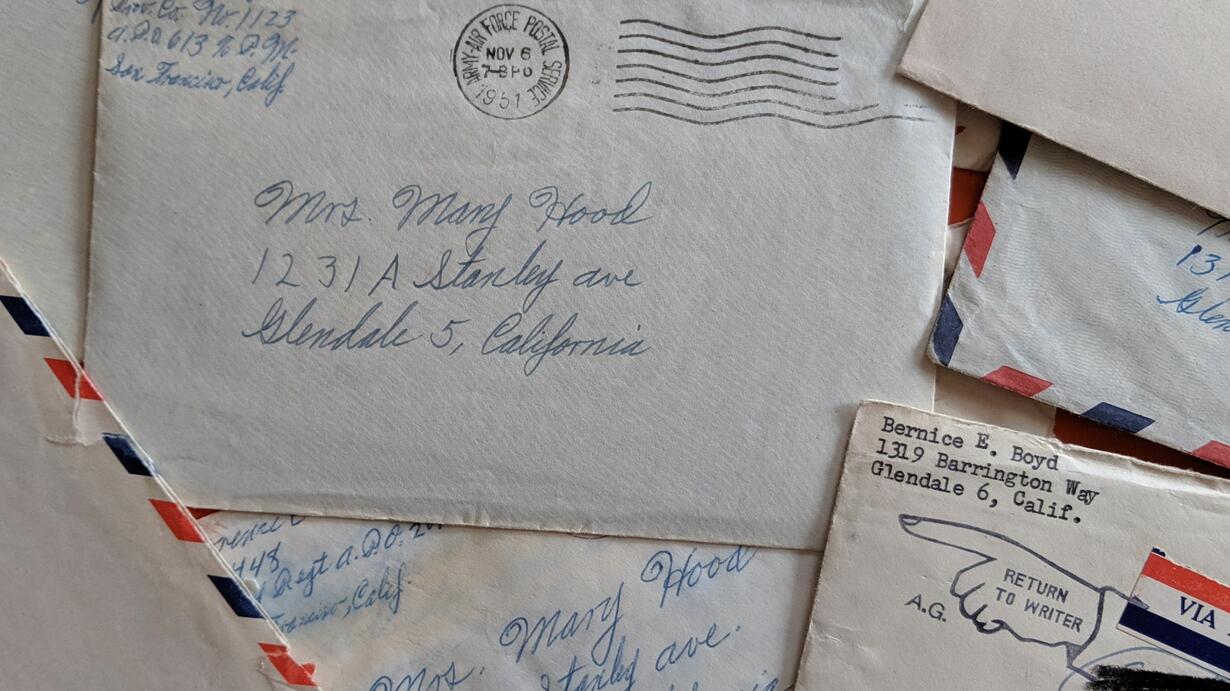 Co. No. 1123
a.P.O. 613 % P.M.
San Francisco, Calif
ARMY-AIR FORCE POSTAL SERVICE
NOV 6
1951
Mrs. Mary Hood
1231A Stanley ave
Glendale 5, California
13
Glen
Bernice E. Boyd
1319 Barrington Way
Glendale 6, Calif.
RETURN
TO WRITER
A.G.
VIA
448
Regt a.P.O. 2
Francisco, Calif
Mrs. Mary Hood
Stanley ave.